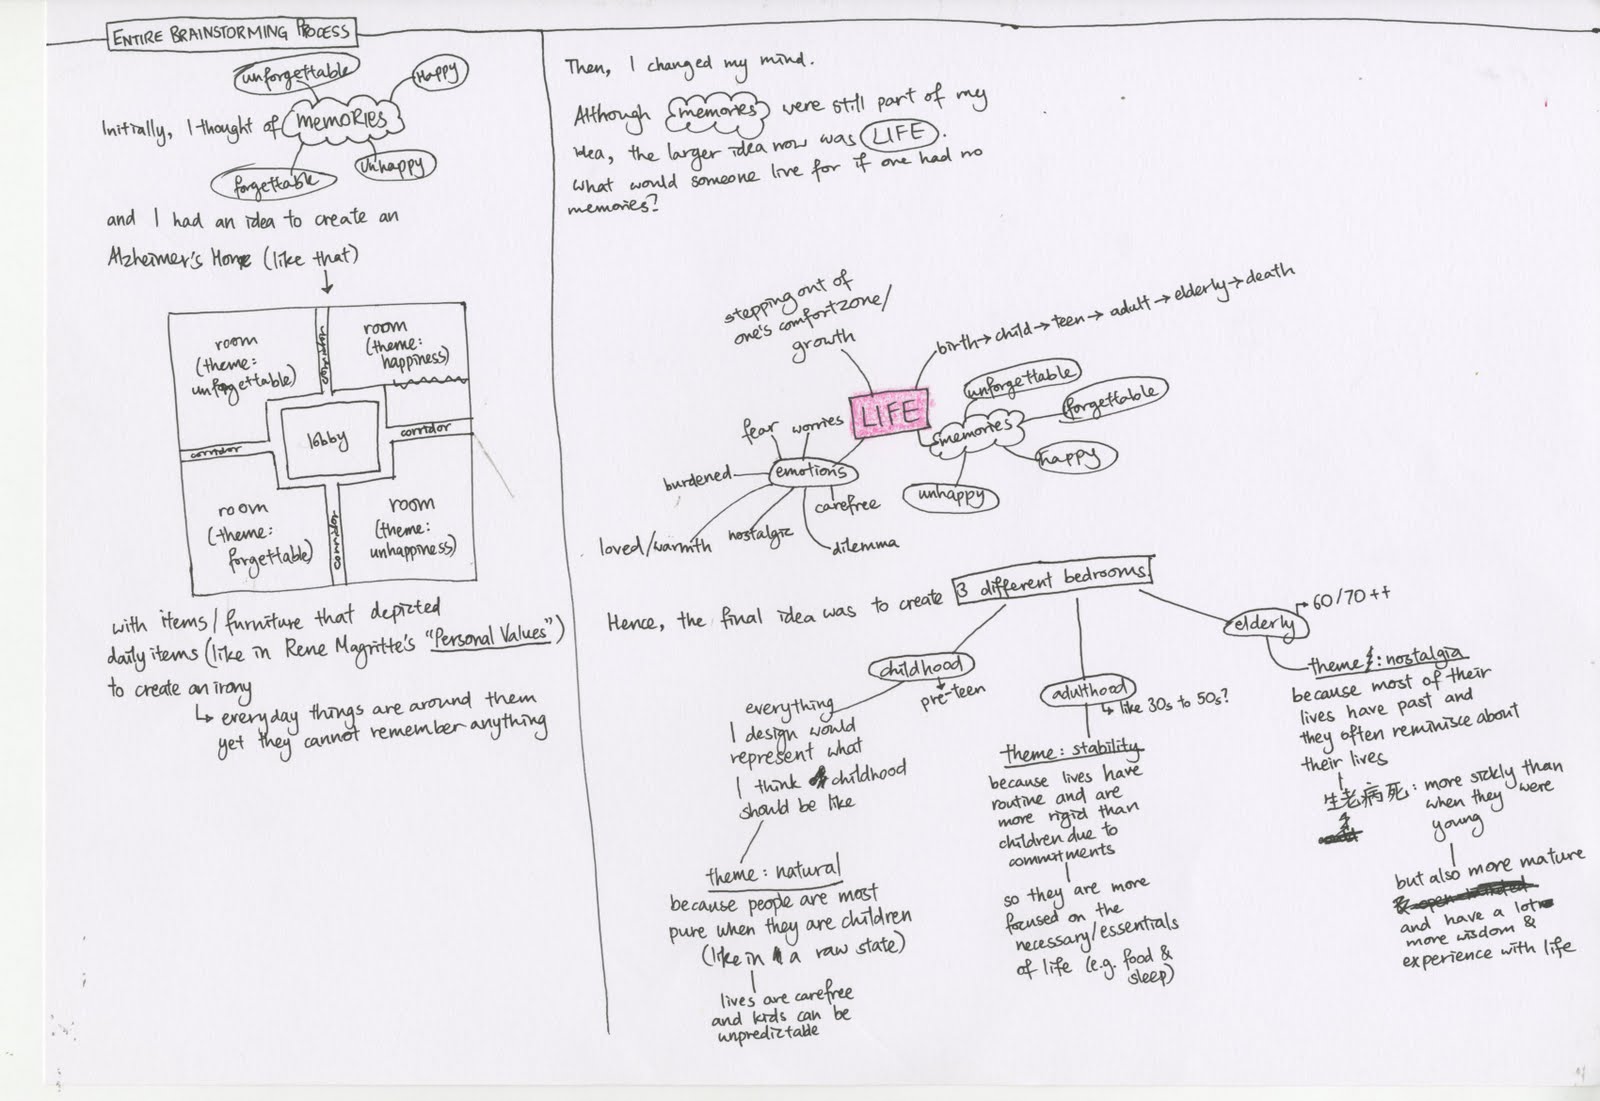 ENTIRE BRAINSTORMING PROCESS
unforgettable
Happy
Initially, I thought of MEMORIES
forgettable
unhappy
and I had an idea to create an
Alzheimer's Home (like that)
room
(theme:
unforgettable)
corridor
room
(theme:
happiness)
lobby
corridor
corridor
room
(theme:
forgettable)
corridor
room
(theme:
unhappiness)
with items/furniture that depicted
daily items (like in Rene Magritte's "Personal Values")
to create an irony
↳ everyday things are around them
yet they cannot remember anything
Then, I changed my mind.
Although memories were still part of my
idea, the larger idea now was LIFE.
what would someone live for if one had no
memories?
stepping out of
one's comfortzone/
growth
birth→child→teen→adult→elderly→death
LIFE
unforgettable
forgettable
memories
happy
unhappy
fear
worries
emotions
burdened
carefree
loved/warmth
nostalgic
dilemma
Hence, the final idea was to create 3 different bedrooms
childhood
pre-teen
everything
I design would
represent what
I think childhood
should be like
theme: natural
because people are most
pure when they are children
(like in a raw state)
lives are carefree
and kids can be
unpredictable
adulthood
↳ like 30s to 50s?
theme: stability
because lives have
routine and are
more rigid than
children due to
commitments
so they are more
focused on the
necessary/essentials
of life (e.g. food &
sleep)
elderly
60/70++
theme: nostalgia
because most of their
lives have past and
they often reminisce about
their lives
生老病死: more sickly than
when they were
young
but also more mature
and have a lot
more wisdom &
experience with life